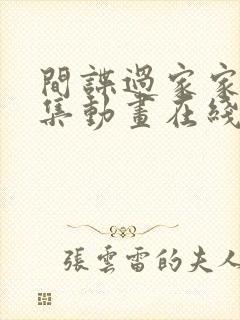 間諜過家家
集動畫在綫
張雲雷的夫人